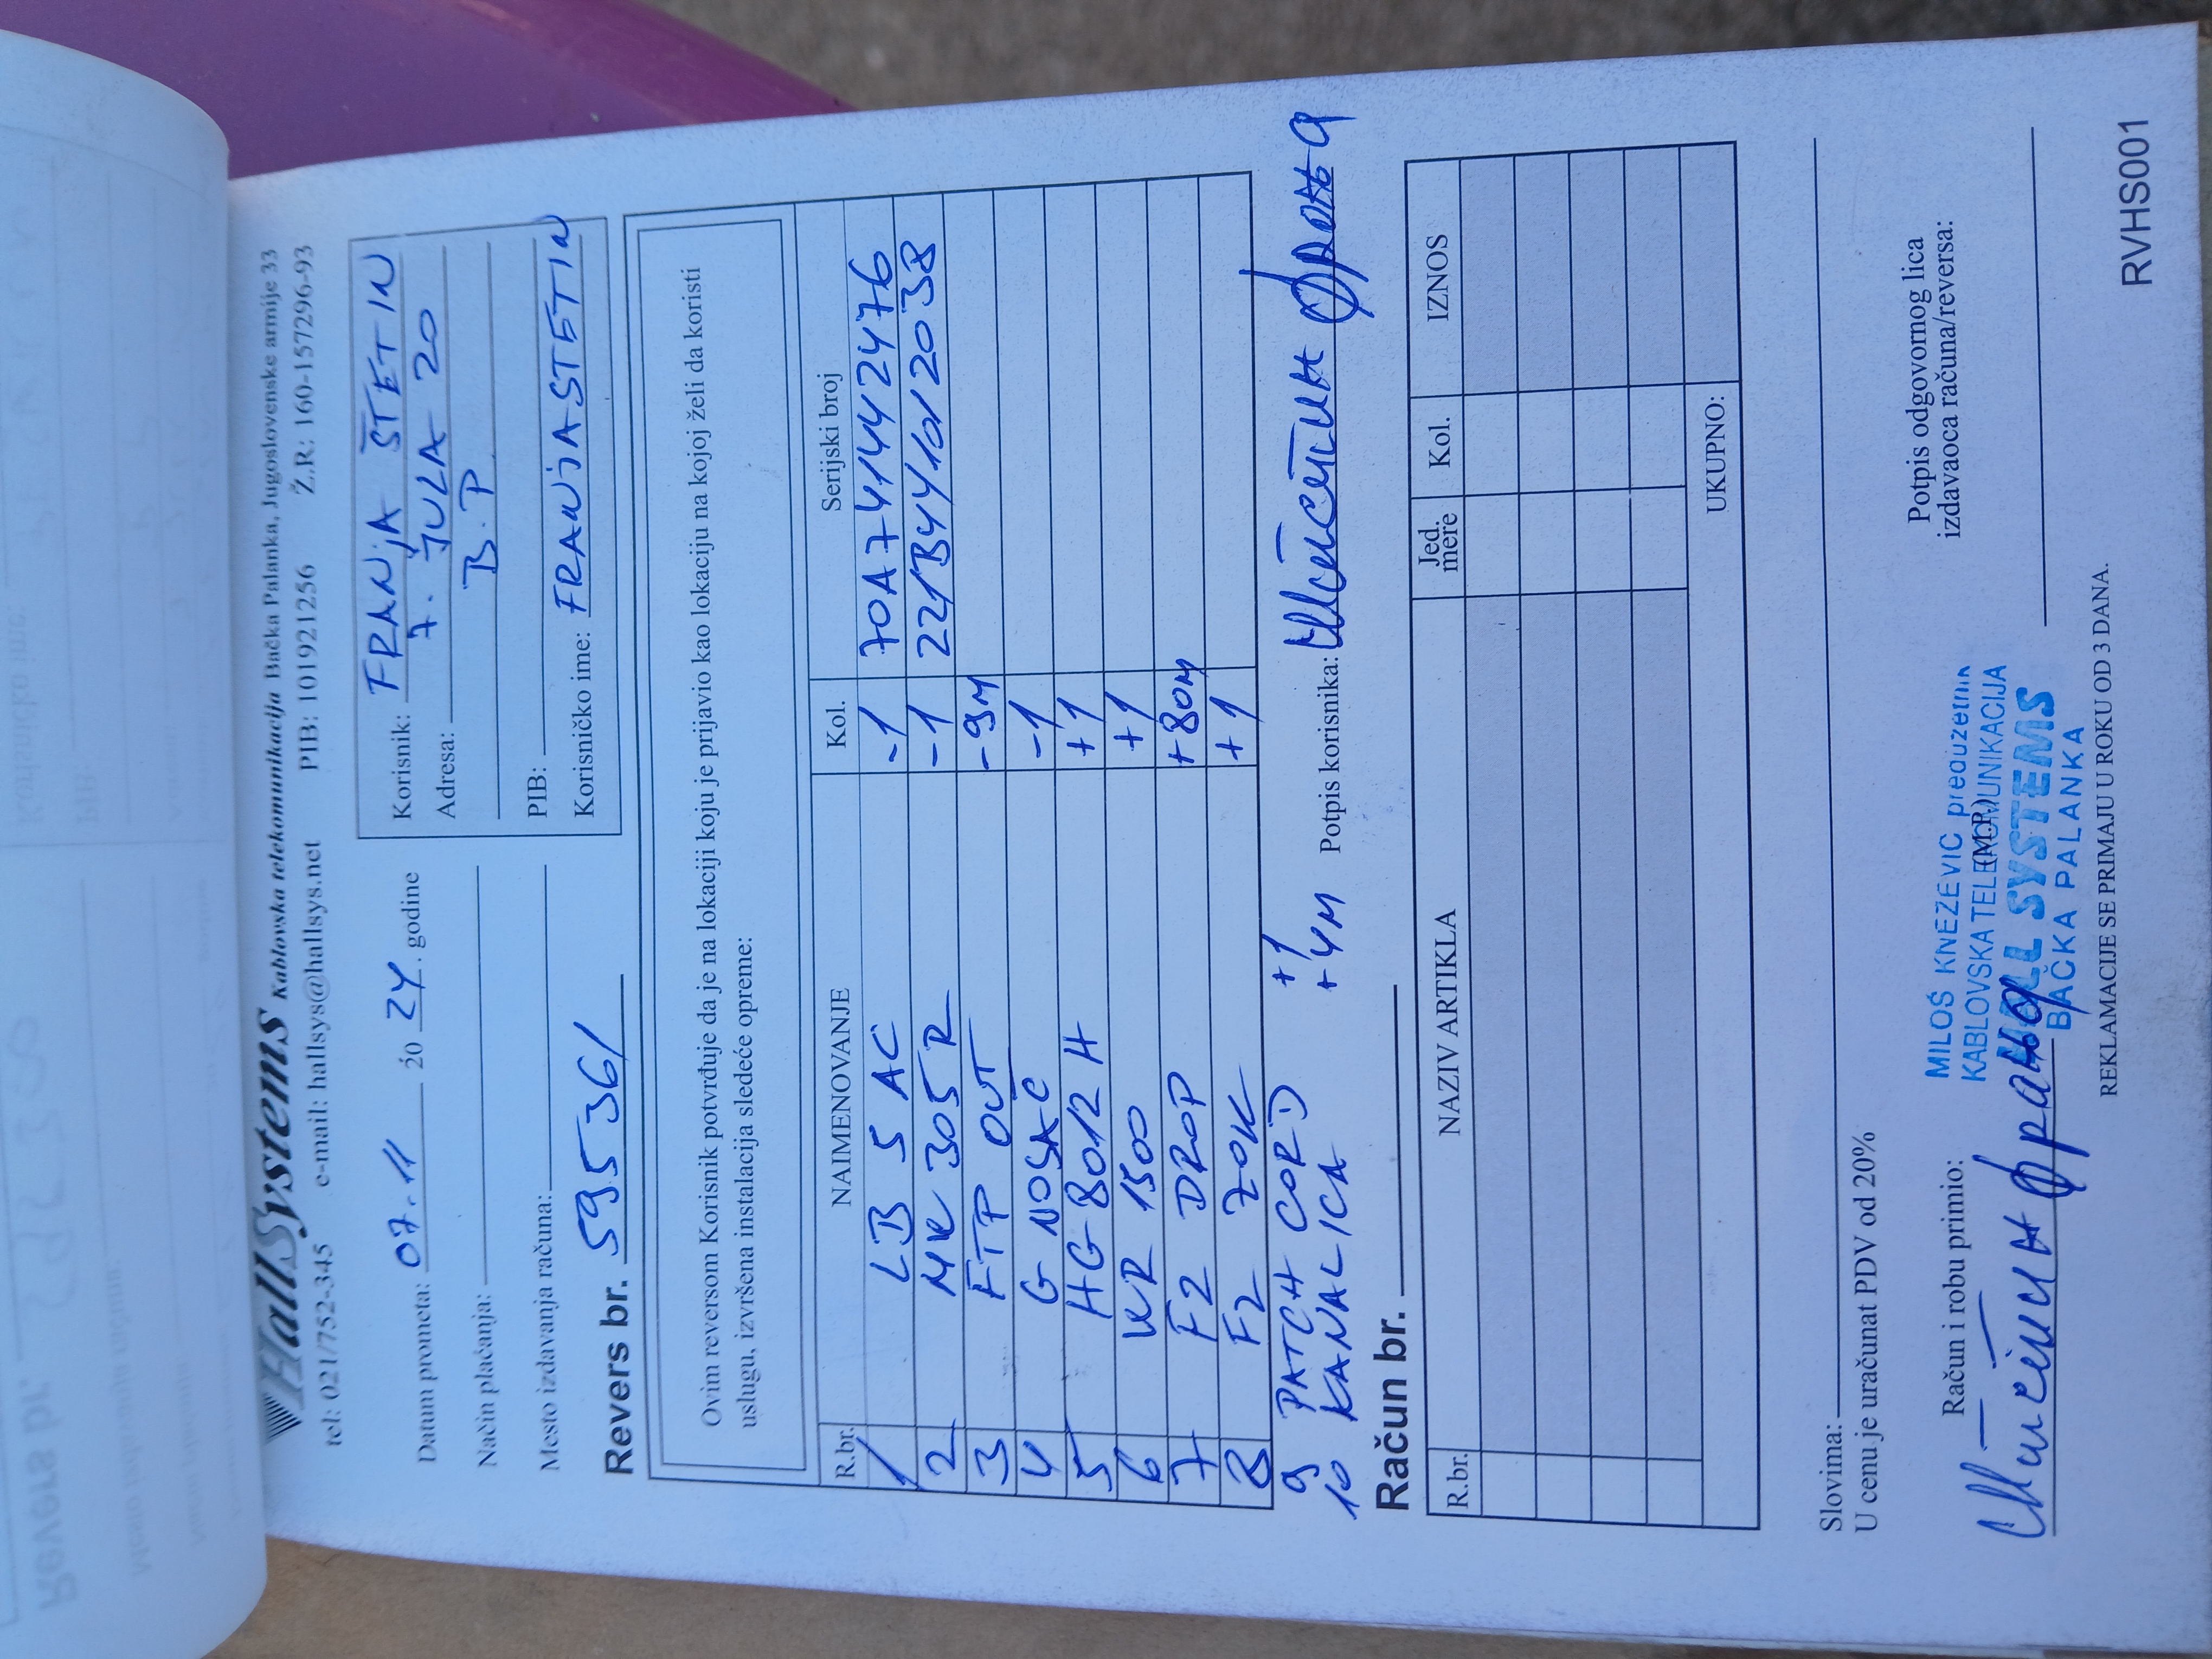 HallSystems Kablovska telekomunikacija Bačka Palanka, Jugoslovenske armije 33
tel: 021/752-345 e-mail: hallsys@hallsys.net PIB: 101921256 Ž.R.: 160-157296-93
Datum prometa: 07.11 20 24. godine
Način plaćanja:
Mesto izdavanja računa:
Revers br. 59536/
Korisnik: FRANJA ŠTETIN
Adresa: 7. JULA 20
B.P
PIB:
Korisničko ime: FRANJASTETIN
Ovim reversom Korisnik potvrđuje da je na lokaciji koju je prijavio kao lokaciju na kojoj želi da koristi
uslugu, izvršena instalacija sledeće opreme:
R.br. NAIMENOVANJE Kol. Serijski broj
1 LB 5 AC -1 70A741442476
2 MK 305 R -1 221B441012038
3 FTP OUT -9M
4 G NOSAČ -1
5 HG 8012 H +1
6 WR 1500 +1
7 F2 DROP +80M
8 F2 ZOK +1
9 PATCH CORD +1
10 KANALICA +4M Potpis korisnika: Штетин Фрања
Račun br.
R.br. NAZIV ARTIKLA Jed. mere Kol. IZNOS
UKUPNO:
Slovima:
U cenu je uračunat PDV od 20%
Račun i robu primio:
Штетин Фрања
MILOŠ KNEZEVIC preduzetnik
KABLOVSKA TELEKOMUNIKACIJA
(M.P.)
HALL SYSTEMS
BAČKA PALANKA
Potpis odgovornog lica
izdavaoca računa/reversa:
REKLAMACIJE SE PRIMAJU U ROKU OD 3 DANA.
RVHS001